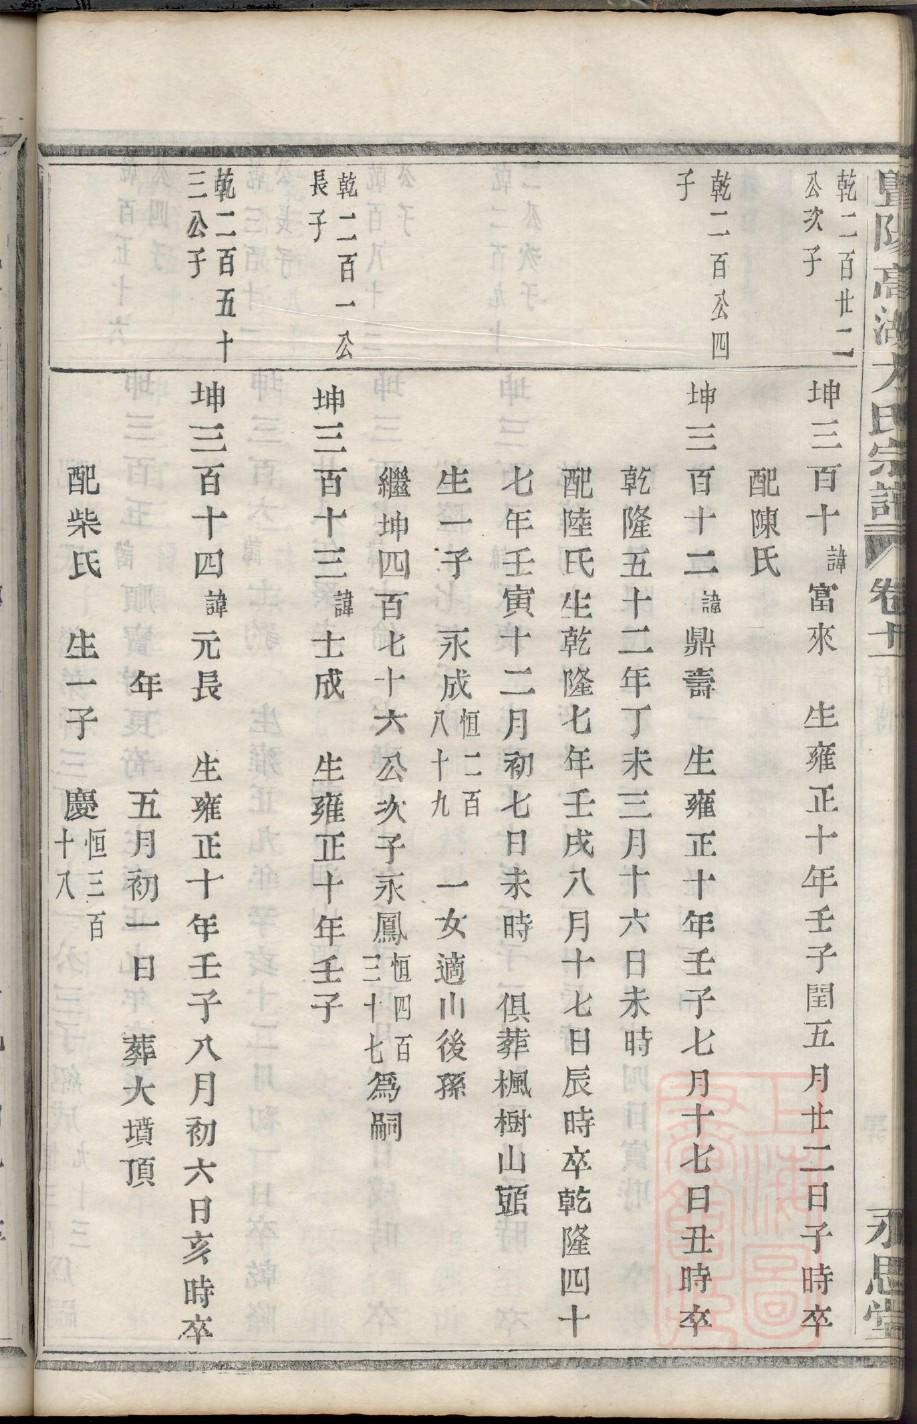 暨陽高湖方氏宗譜 卷十二 永思堂
乾二百廿二
公次子
坤三百十諱富來 生雍正十年壬子閏五月廿二日子時卒
配陳氏
乾二百公四
子
坤三百十二諱鼎壽 生雍正十年壬子七月十七日丑時卒
乾隆五十二年丁未三月十六日未時
配陸氏生乾隆七年壬戌八月十七日辰時卒乾隆四十
七年壬寅十二月初七日未時 俱葬楓樹山頭
生一子 永成恒二百八十九 一女適山後孫
繼坤四百七十六公次子永鳳恒四百三十七為嗣
乾二百一公
長子
坤三百十三諱士成 生雍正十年壬子
乾二百五十
三公子
坤三百十四諱元長 生雍正十年壬子八月初六日亥時卒
年 五月初一日 葬大墳頂
配柴氏 生一子 慶恒三百十八